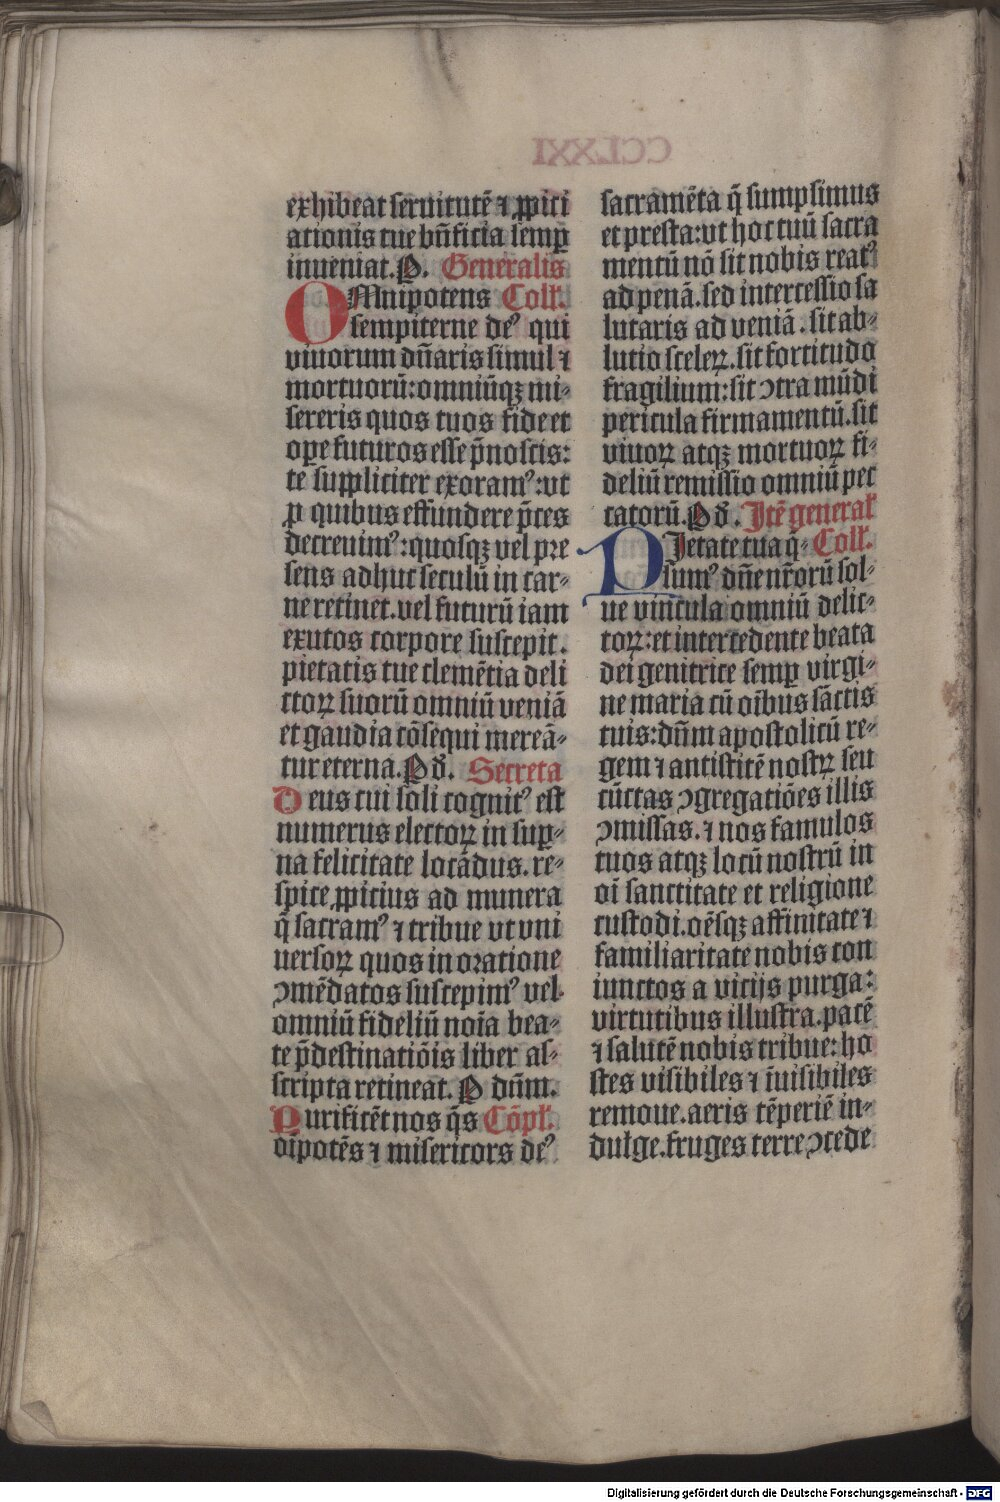 exhibeat seruitutē ⁊ ꝓpici
ationis tue bn̄ficia semꝑ
inueniat. P. Generalis
OMnipotens Coll̄.
sempiterne deꝰ qui
viuorum dn̄aris simul ⁊
mortuorū: omniūqꝫ mi⸗
sereris quos tuos fide et
oꝑe futuros esse p̄noscis:
te suppliciter exoramꝰ: vt
ꝓ quibus effundere p̄ces
decreuimꝰ: quosqꝫ vel pre
sens adhuc seculū in car⸗
ne retinet. vel futurū iam
exutos corpore suscepit.
pietatis tue clemētia deli
ctoꝝ suorū omniū veniā
et gaudia cōsequi mereā⸗
tur eterna. P d̄. Secreta
Deus cui soli cognitꝰ est
numerus electoꝝ in suꝑ⸗
na felicitate locādus. re⸗
spice ꝓpicius ad munera
q̄ sacramꝰ ⁊ tribue vt vni
uersoꝝ quos in oratione
ꝯmēdatos suscepimꝰ vel
omniū fideliū noīa bea⸗
te p̄destinatiōis liber as⸗
scripta retineat. P dn̄m.
Purificēt nos q̄s Cōpl̄.
oīpotēs ⁊ misericors deꝰ
sacramēta q̄ sumpsimus
et presta: vt hoc tuū sacra
mentū nō sit nobis reatꝰ
ad penā. sed intercessio sa
lutaris ad veniā. sit ab⸗
lutio sceleꝝ. sit fortitudo
fragilium: sit ꝯtra mūdi
pericula firmamentū. sit
viuoꝝ atqꝫ mortuoꝝ fi⸗
deliū remissio omniū pec
catorū. P d̄. Itē general̄
PIetate tua q̄⸗ Coll̄.
sumꝰ dn̄e nr̄orū sol⸗
ue vincula omniū delic⸗
toꝝ: et intercedente beata
dei genitrice semꝑ virgi⸗
ne maria cū oībus sāctis
tuis: dn̄m apostolicū re⸗
gem ⁊ antistitē nostꝝ seu
cūctas ꝯgregatiōes illis
ꝯmissas. ⁊ nos famulos
tuos atqꝫ locū nostrū in
oī sanctitate et religione
custodi. oēsqꝫ affinitate ⁊
familiaritate nobis con
iunctos a vicijs purga:
virtutibus illustra. pacē
⁊ salutē nobis tribue: ho
stes visibiles ⁊ īuisibiles
remoue. aeris tēperiē in⸗
dulge. fruges terre ꝯcede
Digitalisierung gefördert durch die Deutsche Forschungsgemeinschaft - DFG